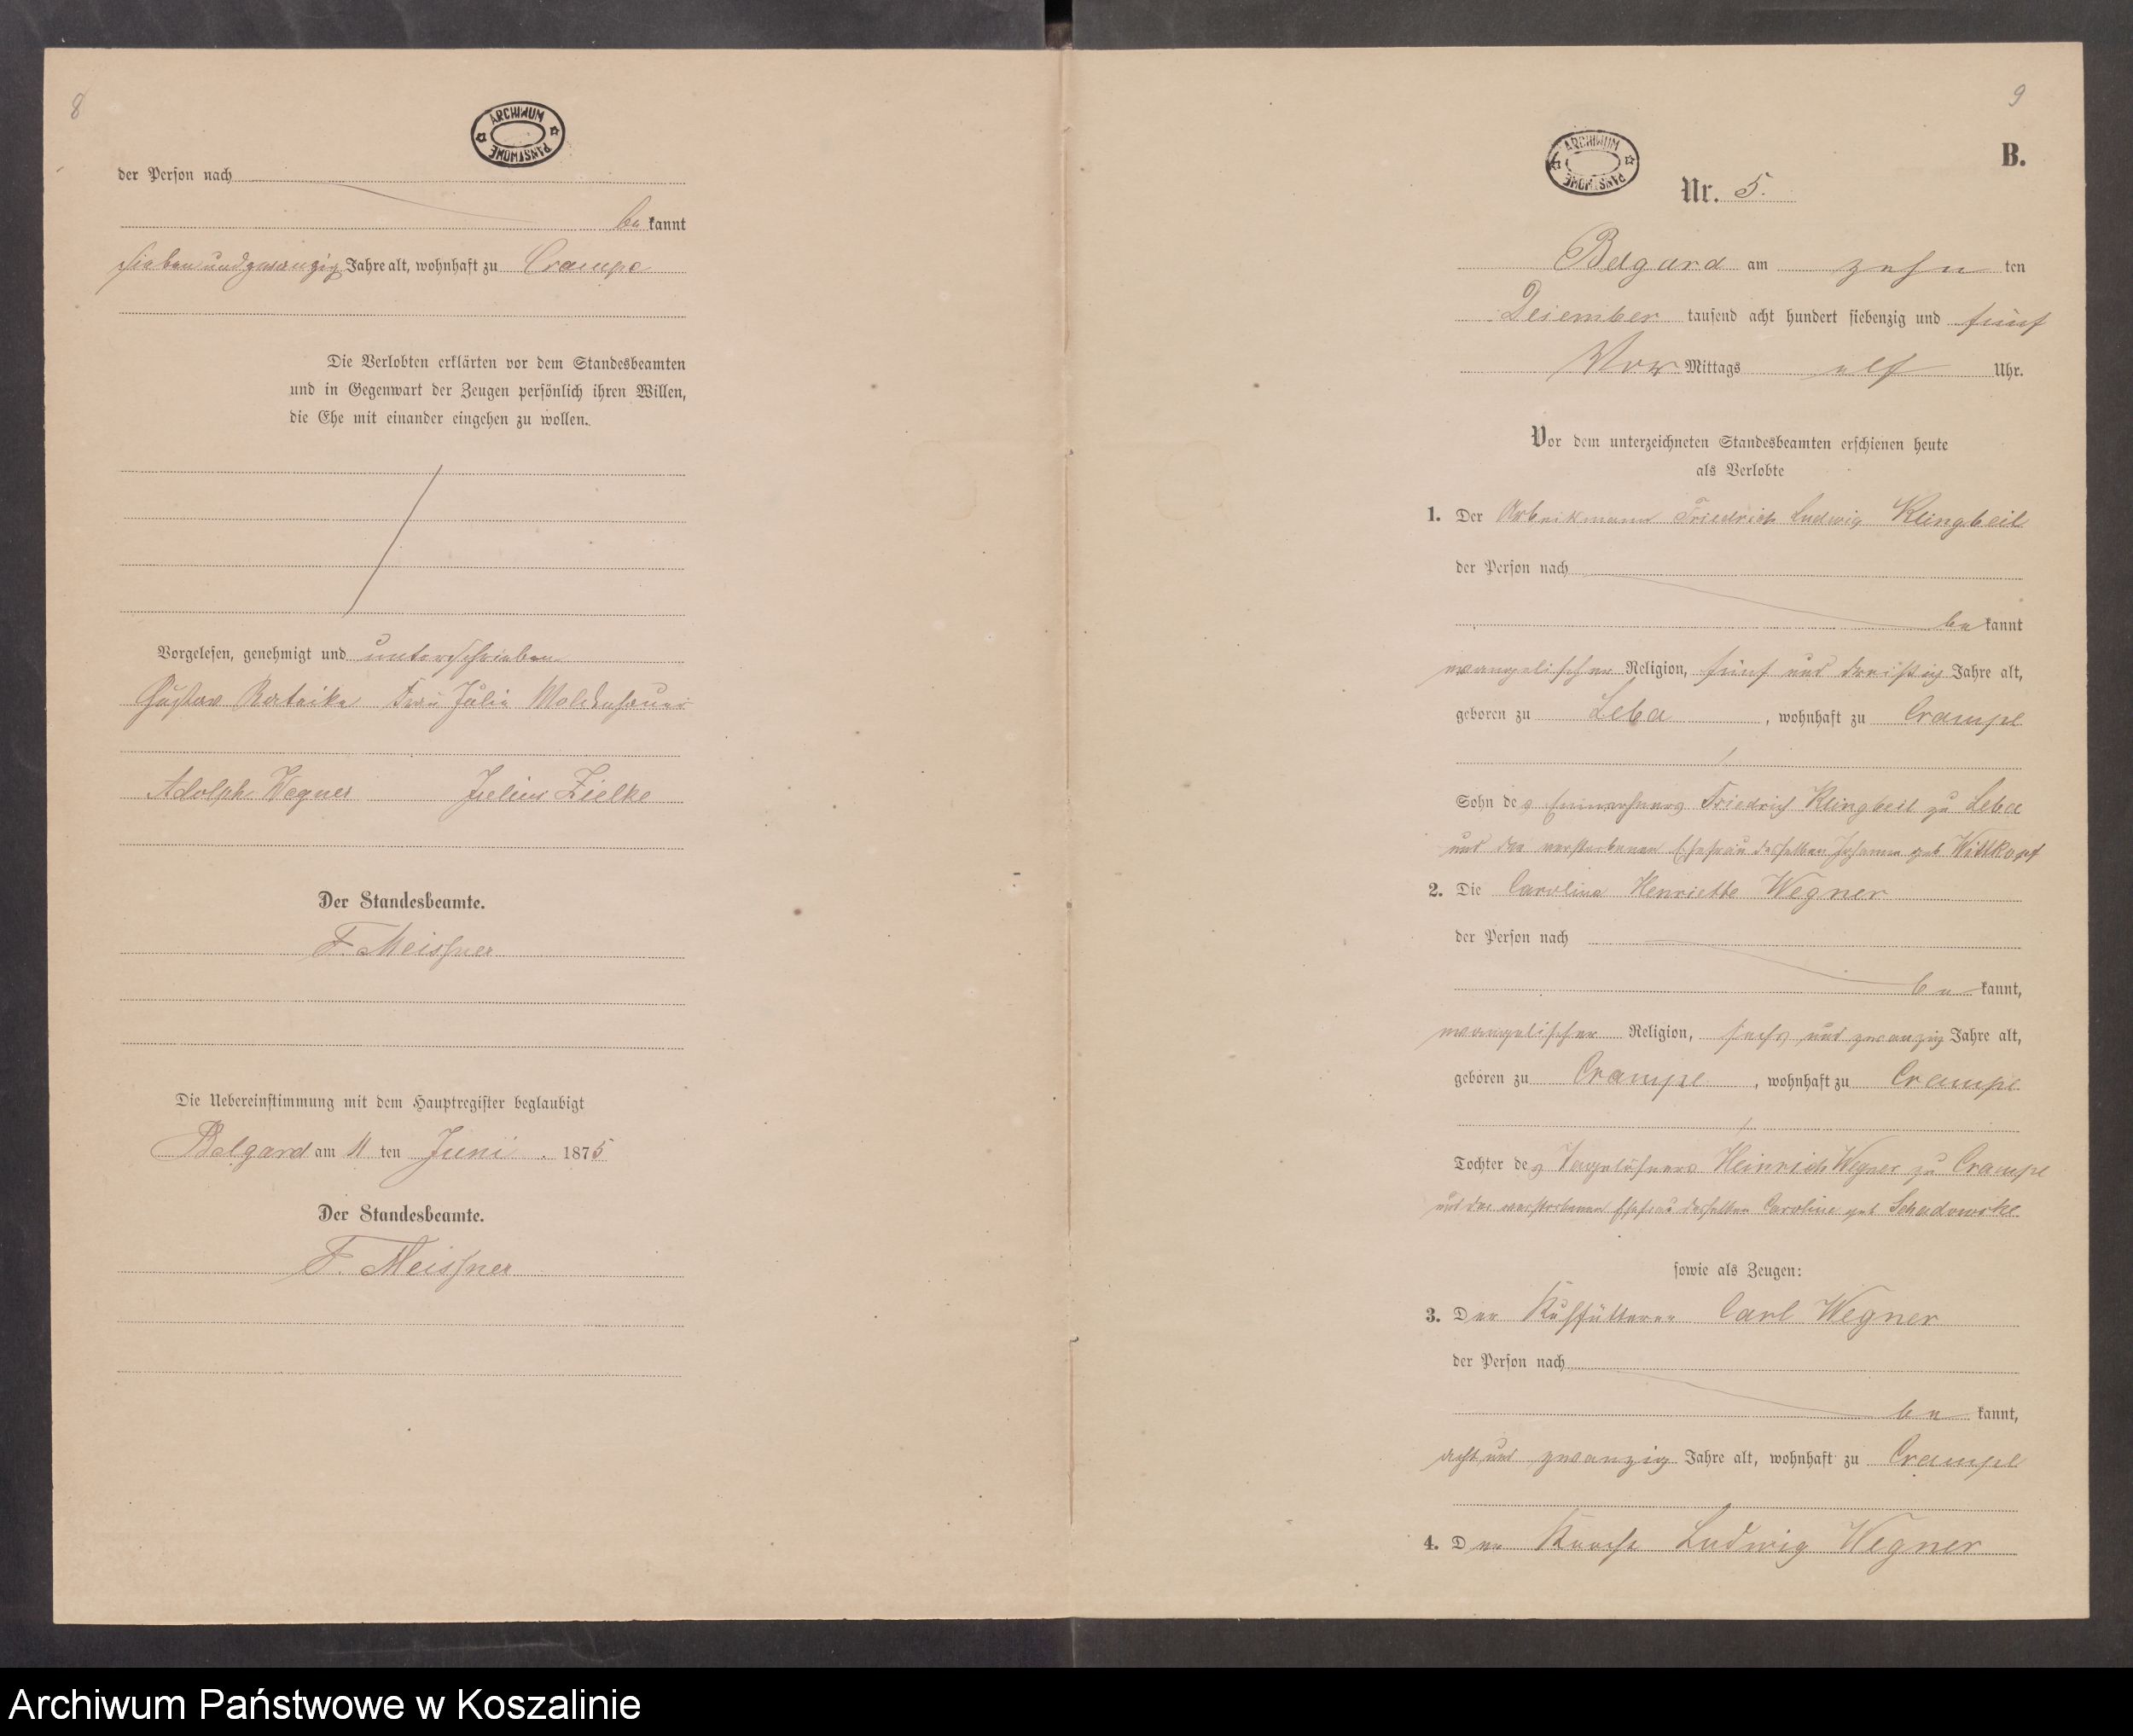 8
ARCHIWUM PAŃSTWOWE
der Person nach
be kannt
siebenundzwanzig Jahre alt, wohnhaft zu Crampe
Die Verlobten erklärten vor dem Standesbeamten
und in Gegenwart der Zeugen persönlich ihren Willen,
die Ehe mit einander eingehen zu wollen.
Vorgelesen, genehmigt und unterschrieben
Gustav Frau Julie Moldenhauer
Adolph Wegner Julius Zielke
Der Standesbeamte.
F. Meissner
Die Uebereinstimmung mit dem Hauptregister beglaubigt
Belgard am 11 ten Juni 1875
Der Standesbeamte.
F. Meissner
9
ARCHIWUM PAŃSTWOWE
B.
Nr. 5.
Belgard am zehn ten
Deiember tausend acht hundert siebenzig und fünf
Vor Mittags elf Uhr.
Vor dem unterzeichneten Standesbeamten erschienen heute
als Verlobte
1. Der Arbeitsmann Friedrich Ludwig Klingbeil
der Person nach
be kannt
evangelischer Religion, fünf und dreißig Jahre alt,
geboren zu Leba, wohnhaft zu Crampe
Sohn des Einwohners Friedrich Klingbeil zu Leba
und der verstorbenen Ehefrau desselben Johanna geb Wittkopf
2. Die Caroline Henriette Wegner
der Person nach
be kannt,
evangelischer Religion, sechs und zwanzig Jahre alt,
geboren zu Crampe, wohnhaft zu Crampe
Tochter des Tagelöhners Heinrich Wegner zu Crampe
und der verstorbenen Ehefrau desselben Caroline geb Schadowske
sowie als Zeugen:
3. Der Kuhfütterer Carl Wegner
der Person nach
be kannt,
acht und zwanzig Jahre alt, wohnhaft zu Crampe
4. Der Knecht Ludwig Wegner
Archiwum Państwowe w Koszalinie